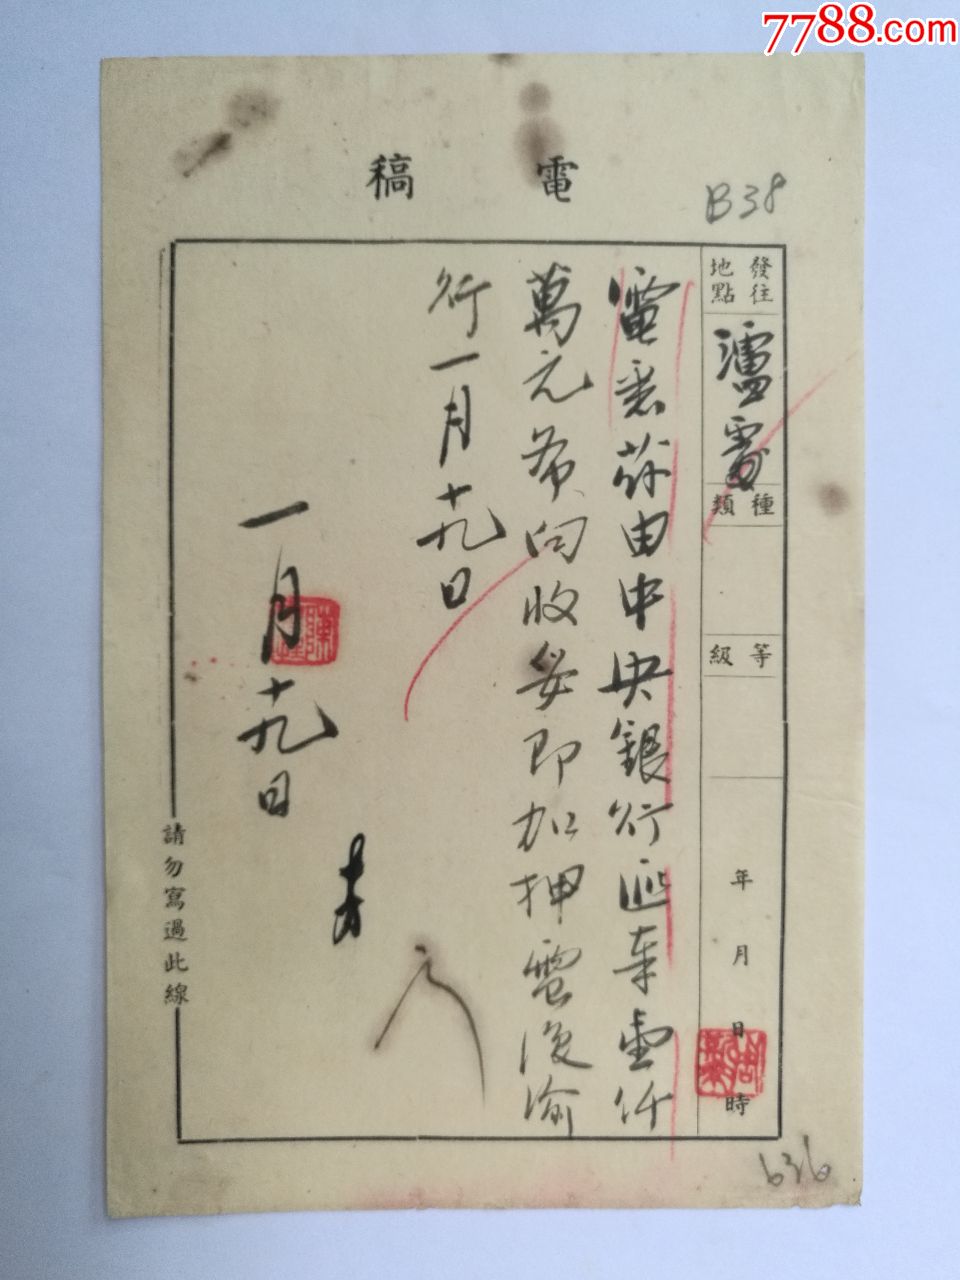 7788.com
電稿
B38
發往地點
瀘處
種類
等級
年 月 日 時
電悉茲由中央銀行匯奉壹仟
萬元希向收妥即加押電復渝
行一月十九日
一月十九日
請勿寫過此線
636